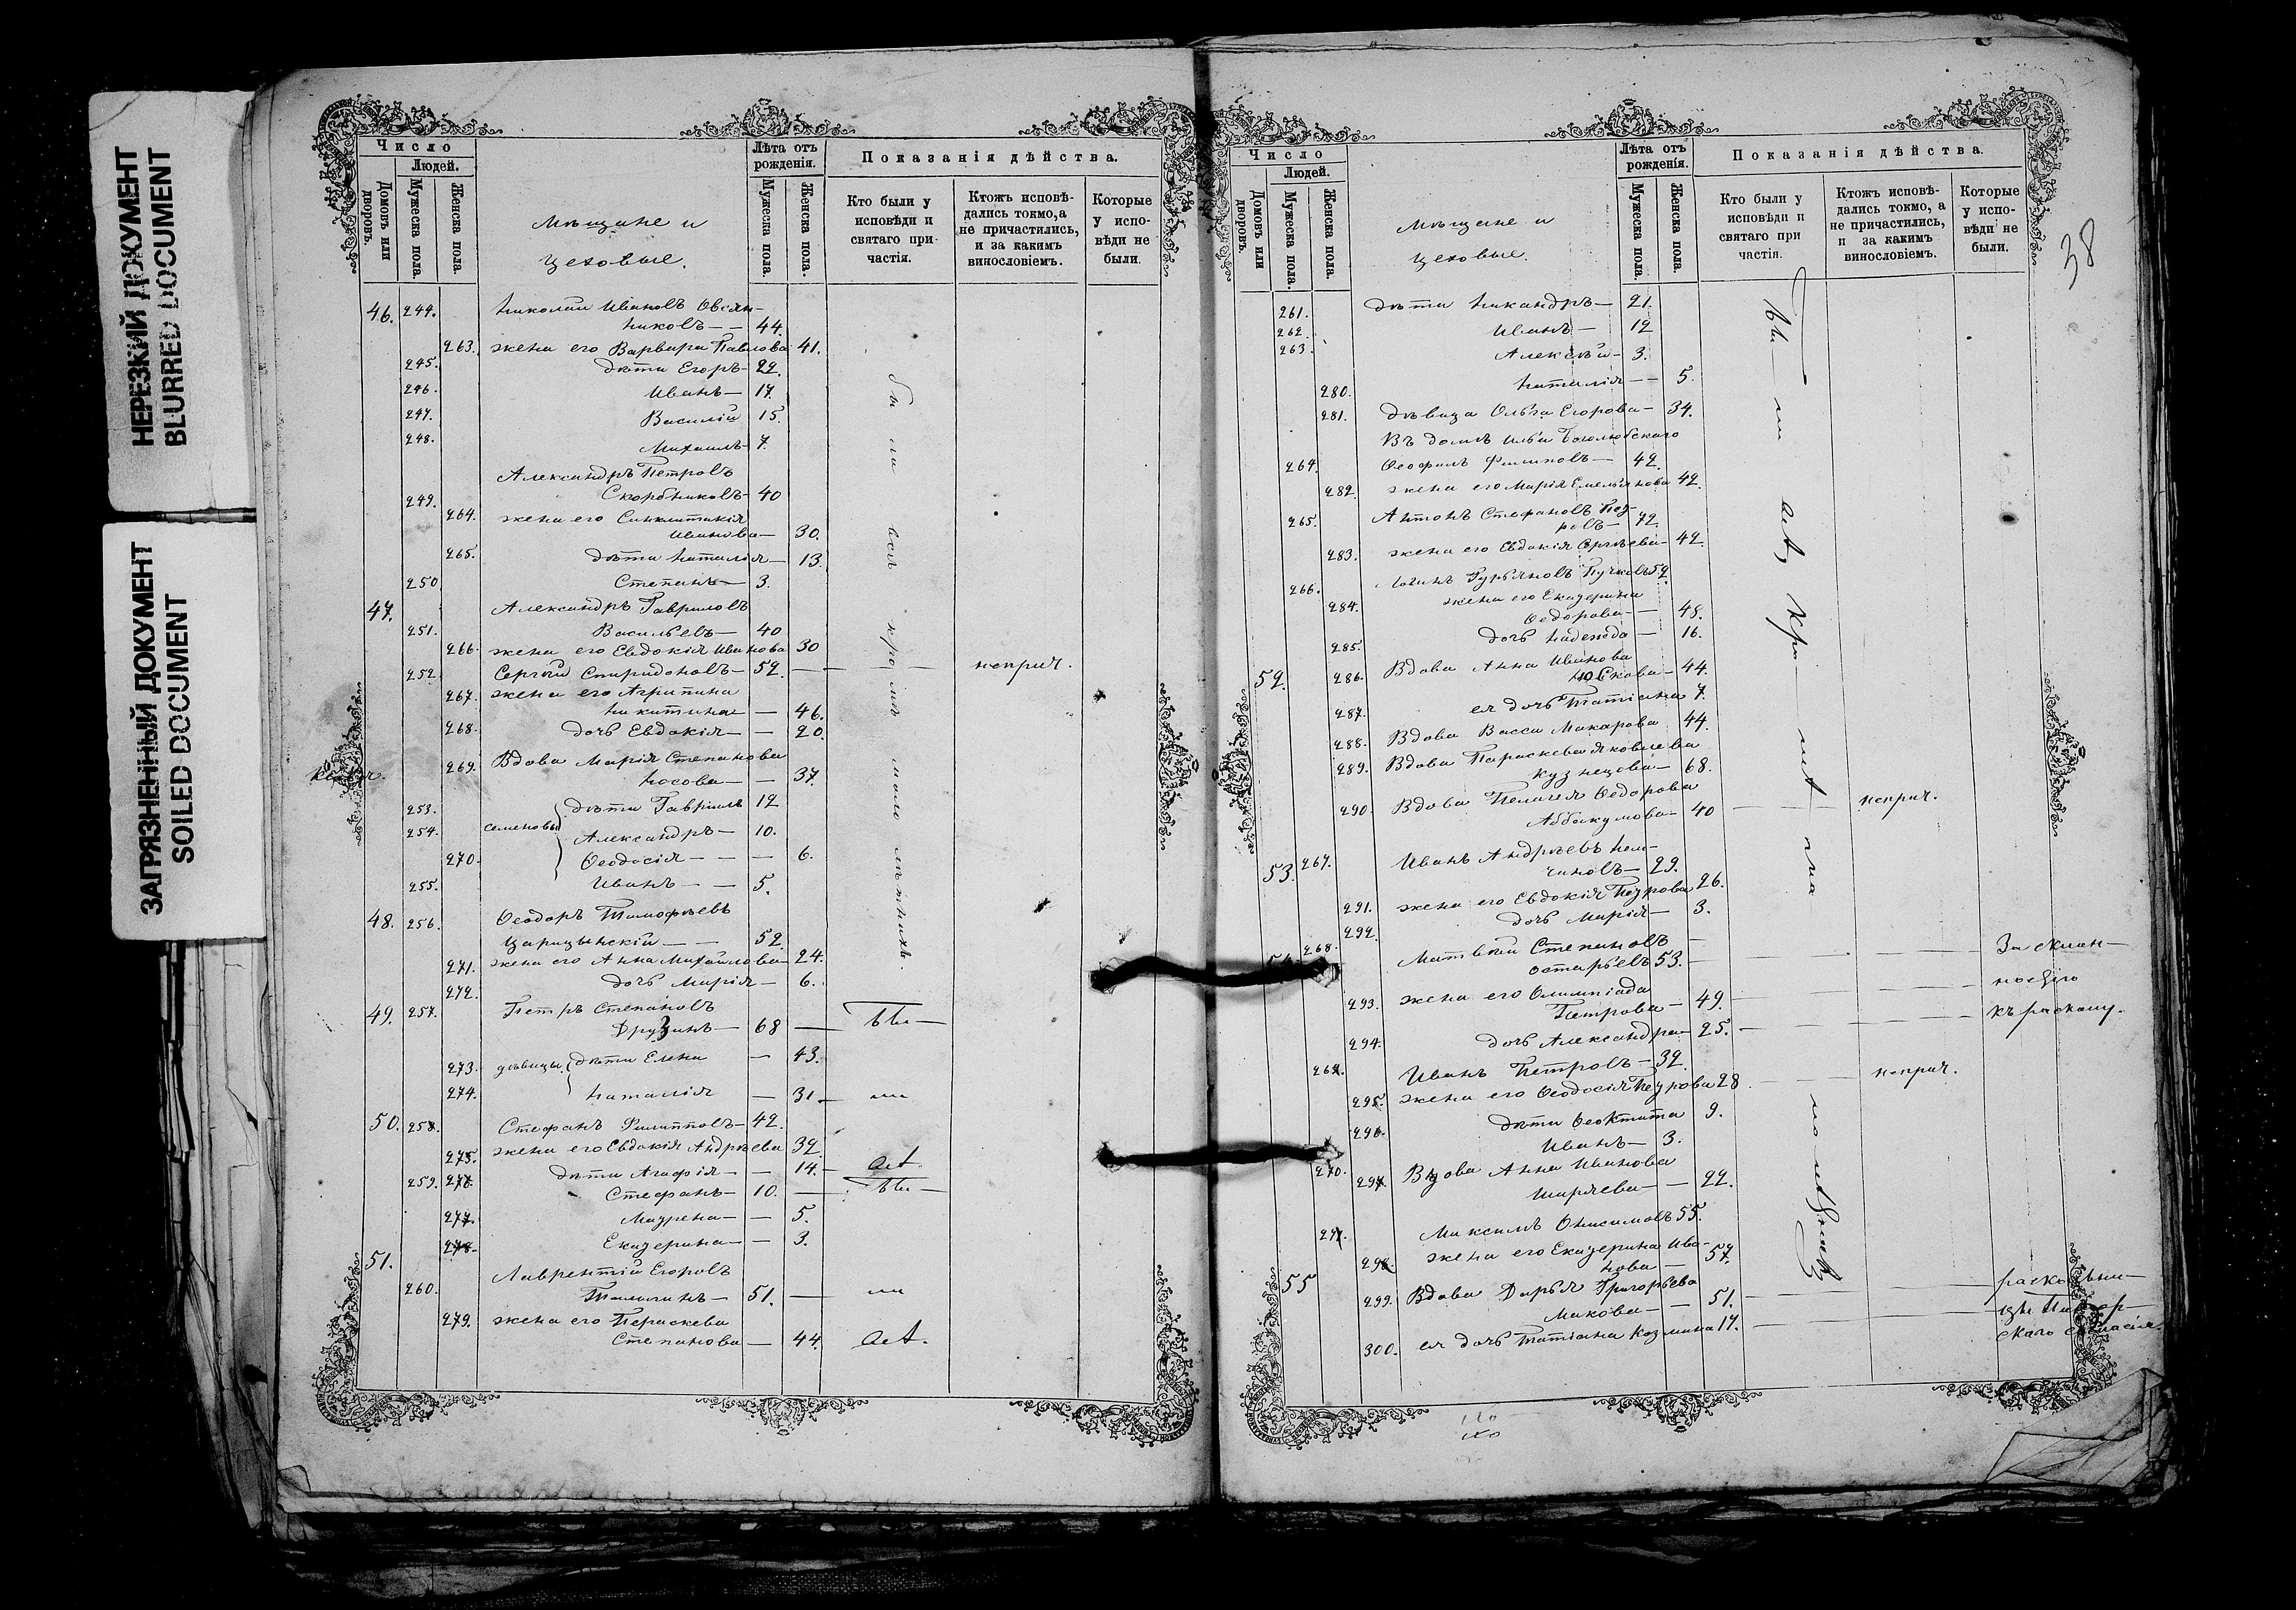 НЕРЕЗКИЙ ДОКУМЕНТ
BLURRED DOCUMENT
ЗАГРЯЗНЕННЫЙ ДОКУМЕНТ
SOILED DOCUMENT
Число
Людей.
Домовъ или дворовъ.
Мужеска пола.
Женска пола.
Мѣщане и
цеховые.
Лѣта отъ рожденія.
Мужеска пола.
Женска пола.
Показанія дѣйства.
Кто были у исповѣди и святаго причастія.
Ктожъ исповѣдались токмо, а не причастились, и за какимъ винословіемъ.
Которые у исповѣди не были.
46. 244. Николай Ивановъ Овсян-
никовъ — — 44.
263. жена его Варвара Павлова 41.
245. дѣти Егоръ — 22.
246. Иванъ — 17.
247. Василій 15.
248. Михаилъ 7.
Александръ Петровъ
249. Скорбниковъ — 40
264. жена его Синклитикія
Иванова — 30.
265. дѣти Наталія — 13.
250. Степанъ — 3.
47. Александръ Гавриловъ
251. Васильевъ — 40
266. жена его Евдокія Иванова 30
252. Сергѣй Спиридоновъ — 52. — неприч.
267. жена его Агрипина
Никитина — 46.
268. дочь Евдокія — — 20.
269. Вдова Марія Степанова
Носова — — 37.
253. дѣти Гавріилъ 12
254. семеновы Александръ — 10.
270. Ѳеодосія — — — 6.
255. Иванъ — — 5.
48. 256. Ѳеодоръ Тимофѣевъ
Царицынскій — — 52.
271. жена его Анна Михайлова 24.
272. дочь Марія — 6.
49. 257. Петръ Степановъ
Друзинъ — 68 —
273. дѣвицы дѣти Елена — 43.
274. Наталія — 31 —
50. 258. Стефанъ Филипповъ — 42.
275. жена его Евдокія Андрѣева 32.
276. дѣти Агафія — — 14.
259. Стефанъ — 10. —
277. Мавреная — — 5.
278. Екатерина — — 3.
51. Лаврентій Егоровъ
260. Талыгинъ — 51. —
279. жена его Параскева
Степанова — 44.
были всѣ кромѣ малолѣтнихъ.
38
Число
Людей.
Домовъ или дворовъ.
Мужеска пола.
Женска пола.
Мѣщане и
цеховые.
Лѣта отъ рожденія.
Мужеска пола.
Женска пола.
Показанія дѣйства.
Кто были у исповѣди и святаго причастія.
Ктожъ исповѣдались токмо, а не причастились, и за какимъ винословіемъ.
Которые у исповѣди не были.
261. дѣти Никандръ — 21.
262. Иванъ — 12
263. Алексѣй — 3.
280. Наталія — — 5.
281. дѣвица Ольга Егорова — 34.
Въ домѣ Ильи Боголюбскаго
264. Ѳеофилъ Филиповъ — 42.
282. жена его Марія Емельянова 42.
265. Антонъ Стефановъ Пет-
ровъ — 72.
283. жена его Евдокія Сергѣева — 42.
266. Логинъ Гурьяновъ Пучковъ 52.
284. жена его Екатерина
Ѳедорова — — 48.
285. дочь Надежда — 16.
52. 286. Вдова Анна Иванова
Юскова — 44.
287. ея дочь Татіана 7.
288. Вдова Васса Макарова 44.
289. Вдова Параскева Яковлева
Кузнецова — 68.
290. Вдова Пелагея Ѳедорова
Аббакумова — 40 — неприч.
53. 267. Иванъ Андрѣевъ Нем-
чиновъ — 29.
291. жена его Евдокія Петрова 26.
292. дочь Марія — 3.
268. Матвѣй Степановъ
Остарьевъ 53. — За склон-
293. жена его Олимпіада ностію
Петрова — 49. къ расколу.
294. дочь Александра — 25.
269. Иванъ Петровъ — 32.
295. жена его Ѳеодосія Петрова 28 — неприч.
296. дѣти Ѳеоктиста 9.
Иванъ — 3.
270. 297. Вдова Анна Иванова
Ширяева — — 22.
271. Максимъ Онисимовъ 55.
298. жена его Екатерина Ива-
нова — 57.
55 299. Вдова Дарья Григорьева
Макова — — 51. расколъни-
300. ея дочь Татіана Козмина 17. цы Помор-
скаго согласія.